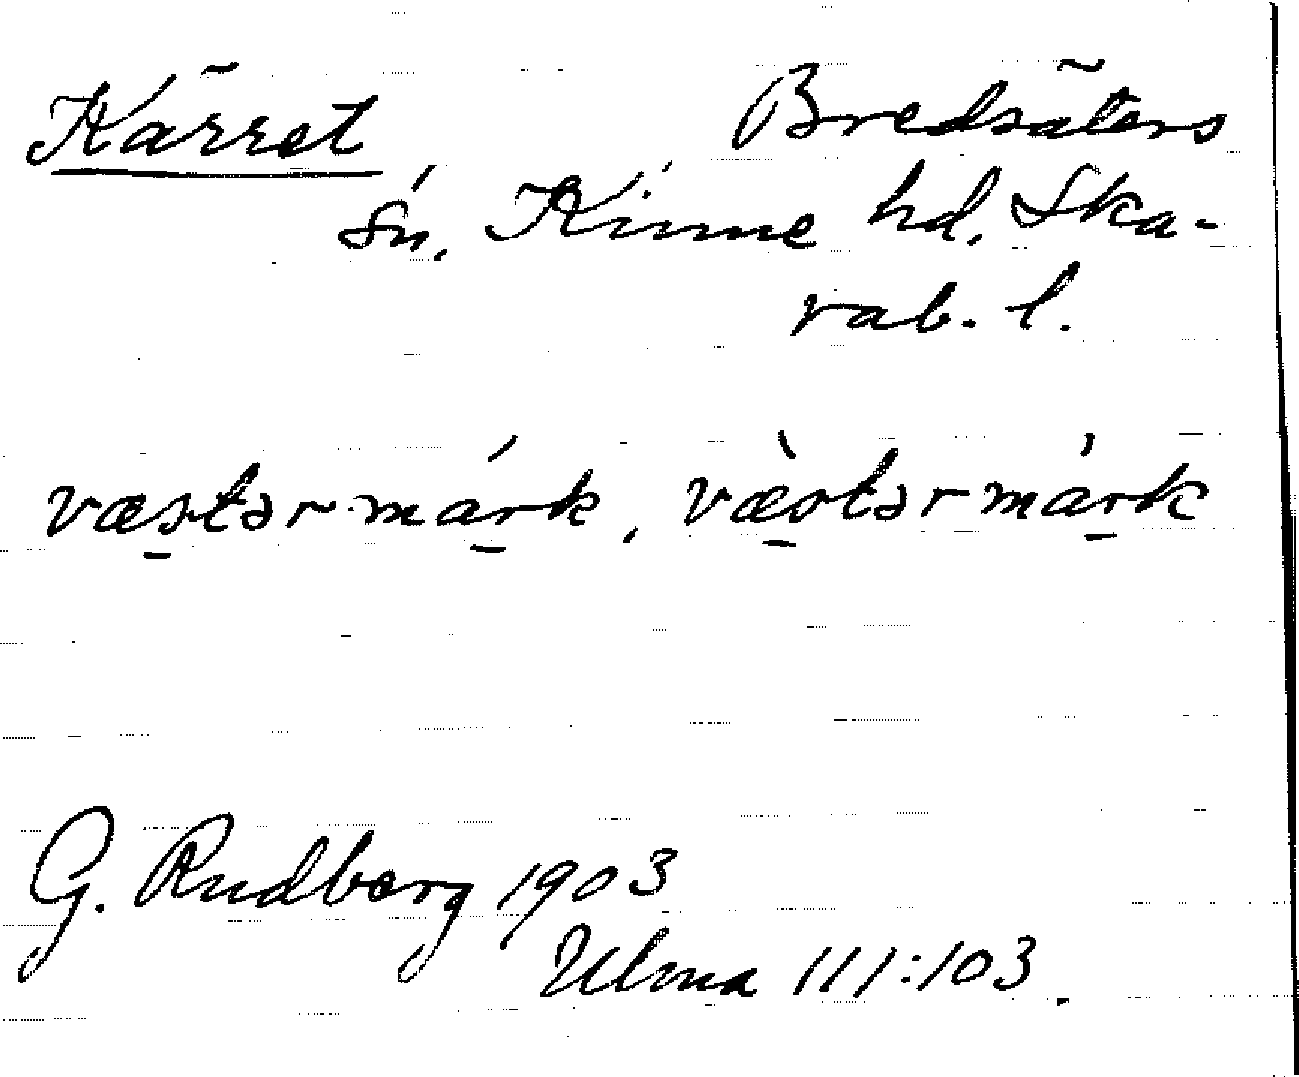 Kärret Bredsäters
sn. Kinne hd. Ska-
rab. l.
væstərmárk, væ̀stərmàrk
G. Rudberg 1903
Ulma 111:103.